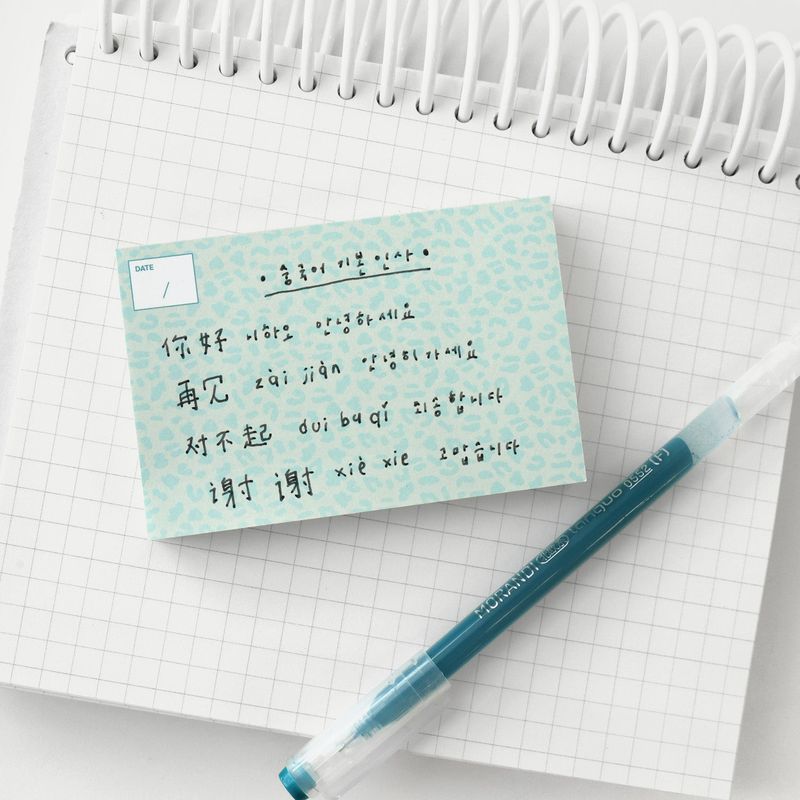 DATE
/
• 중국어 기본 인사 •
你好 니하오 안녕하세요
再见 zài jiàn 안녕히 가세요
对不起 dui bu qǐ 죄송합니다
谢谢 xiè xie 고맙습니다
MORANDI
0552 (F)